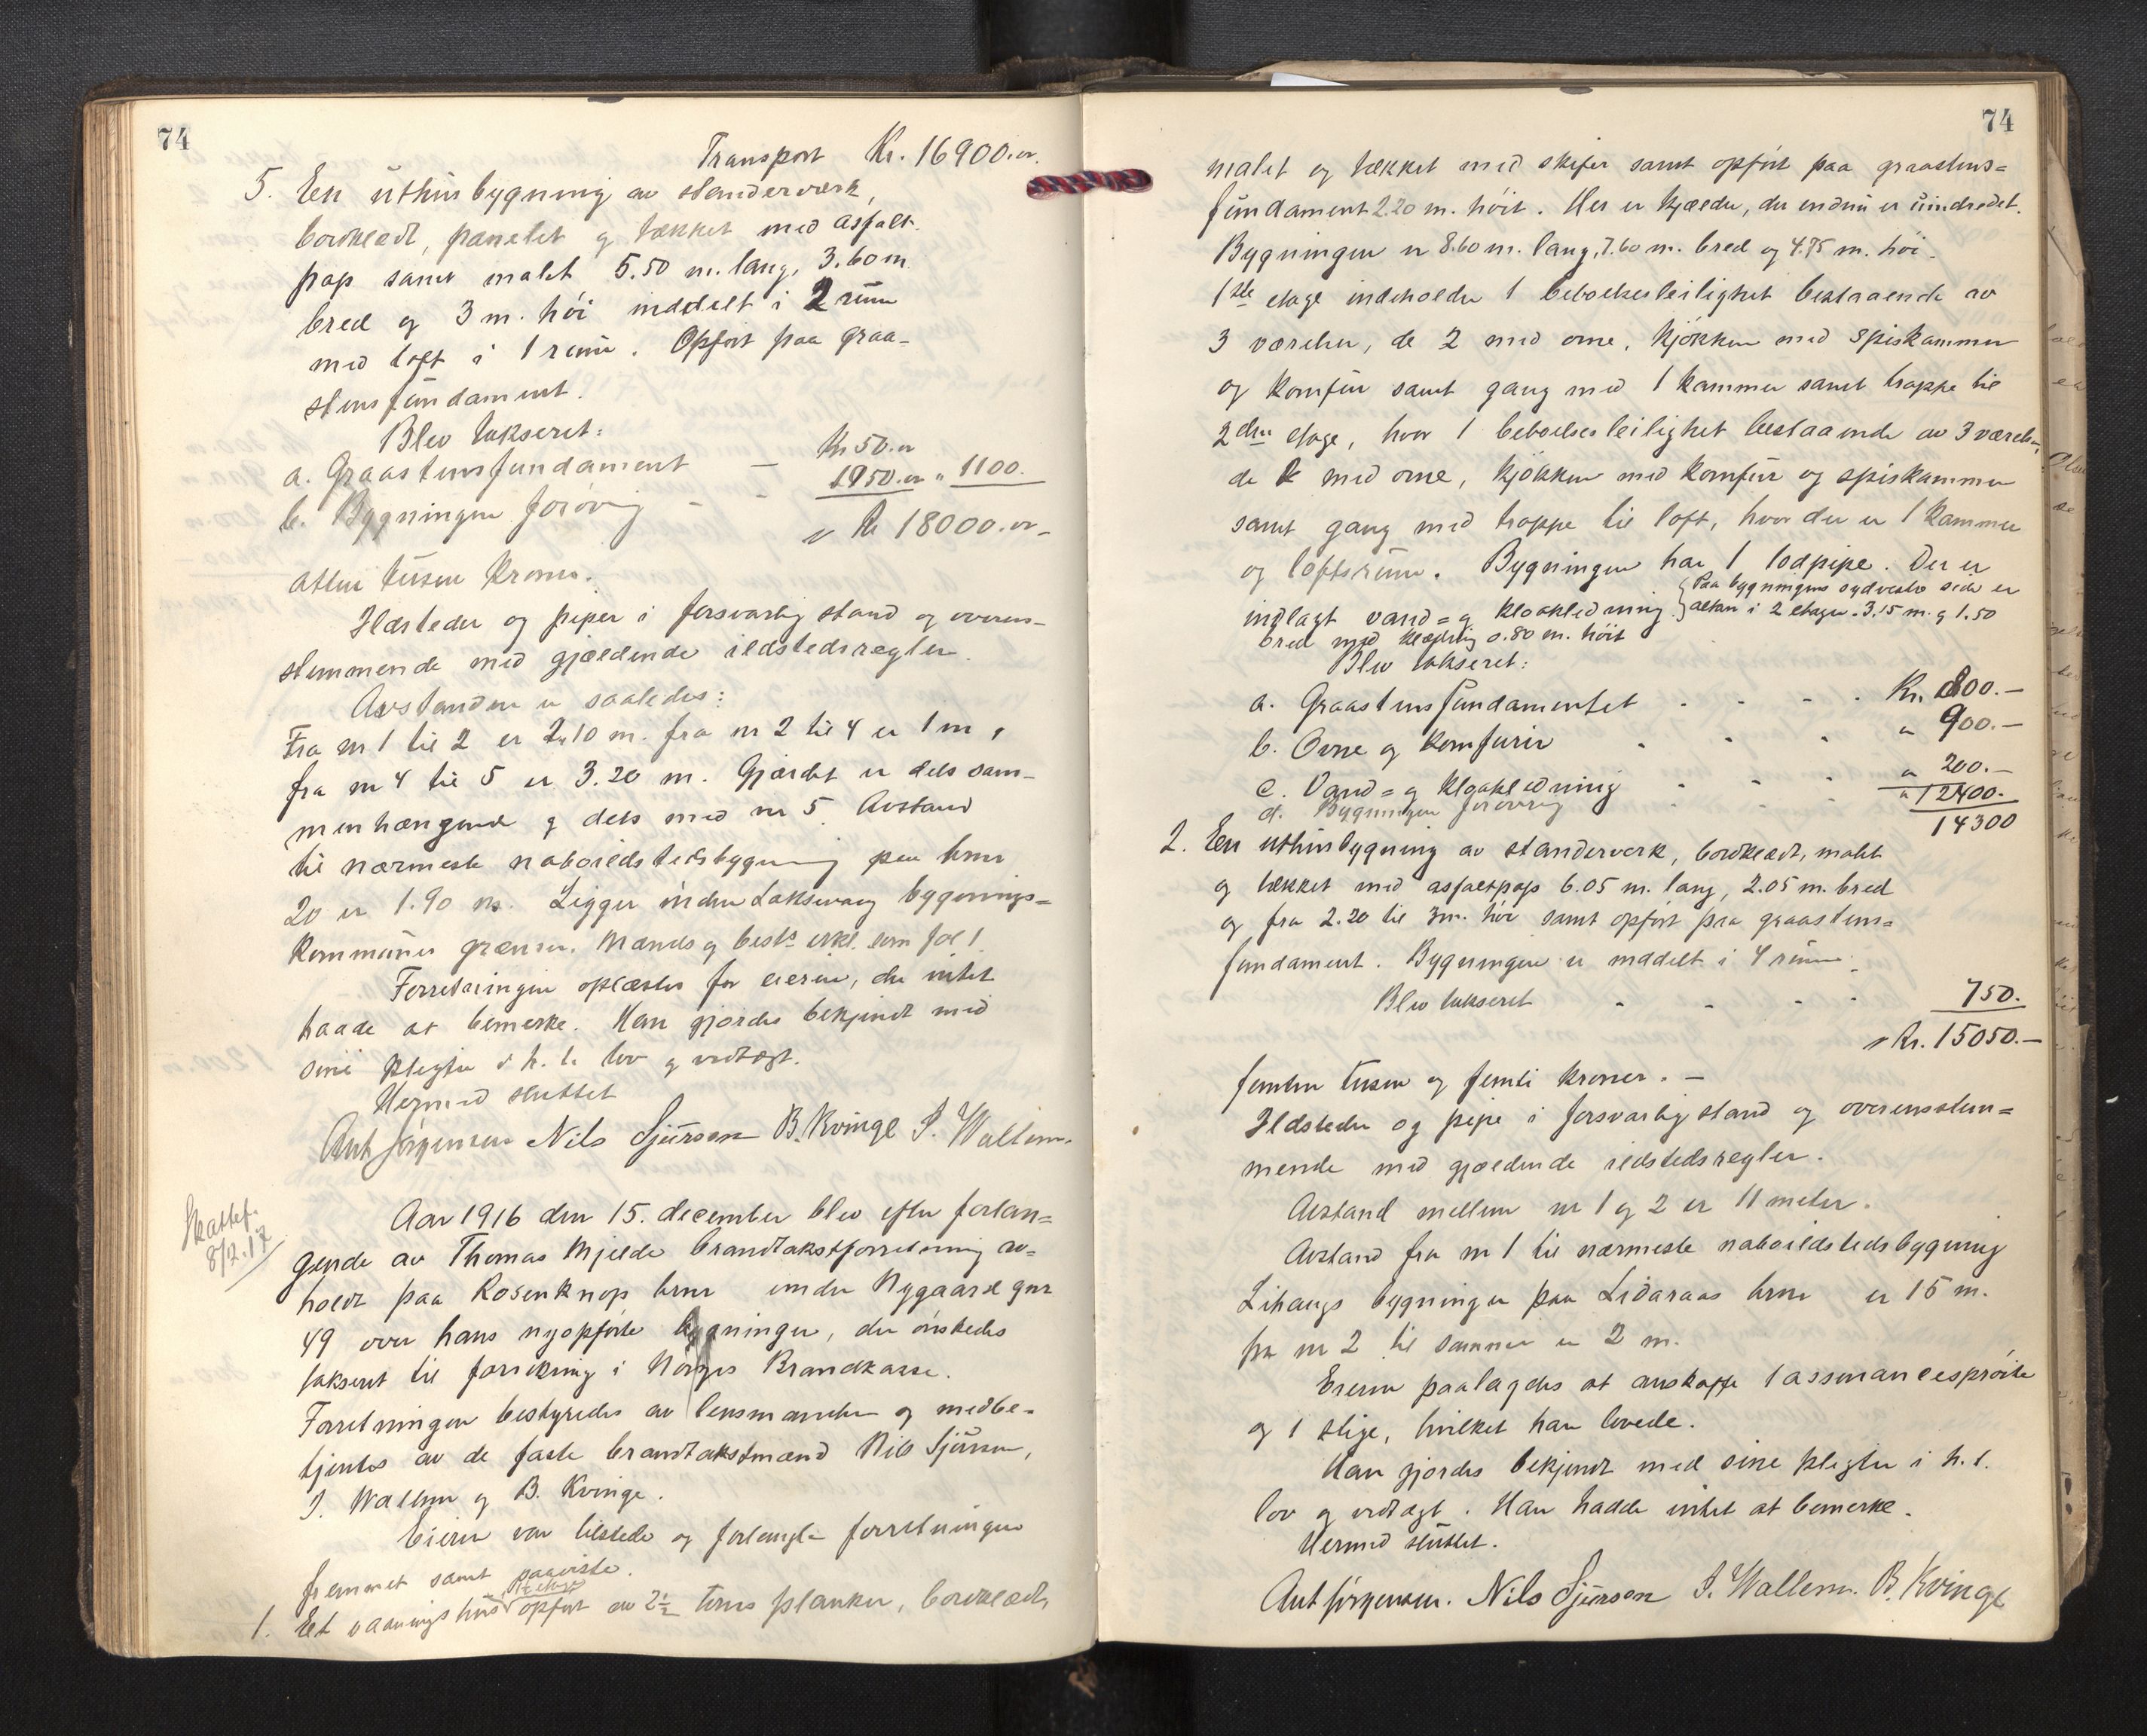 74
Transport Kr. 16900.00
5. En uthusbygning av stenderverk,
bordklædt, panelet og tækket med asfalt-
pap samt malt 5.50 m. lang, 3.60 m
bred og 3 m. höi inddelt i 2 rum
med loft i 1 rum. Opfört paa graa-
stensfundament.
Blev takseret:
a. Graastensfundament – Kr 50.00
b. Bygningen forövrig - - 1050.00 " 1100.
" Kr 18000.00 -
atten tusen kroner.
Ildsteder og piper i forsvarlig stand og overens-
stemmende med gjældende ildstedsregler.
Avstanden er saaledes:
Fra nr 1 til 2 er 2,10 m. fra nr 2 til 4 er 1 m,
fra nr 4 til 5 er 3.20 m. Gjærdet er dels sam-
menhængende og dels med nr 5. Avstand
til nærmeste naboildstedsbygning paa brnr
20 er 1.90 m. Ligger inden Laksevaag bygnings=
kommunes grænser. Mænds og bests erkl. som fol 1.
Forretningen oplæstes for eieren, der intet
havde at bemerke. Han gjordes bekjendt med
sine pligter i h. t. lov og vedtægt.
Hermed sluttet
Ant Jörgensen Nils Sjursen B. Kvinge I. Wallem.
Skattef.
8/2.17
Aar 1916 den 15. december blev efter forlan=
gende av Thomas Mjelde brandtakstforretning av-
holdt paa Rosenknop brnr under Nygaard gnr
49 over hans nyopförte bygninger, der önskedes
takseret til forsikring i Norges Brandkasse.
Forretningen bestyredes av lensmanden og medbe-
tjentes av de faste brandtakstmænd Nils Sjursen,
I. Wallem og B. Kvinge.
Eieren var tilstede og forlangte forretningen
fremmet samt paaviste.
1. Et vaaningshus opfört av 2½ toms planker, bordklædt,
74
malet og tækket med skifer samt opfört paa graastens=
fundament 2.20 m. höit. Her er kjælder, der endnu er uindredet.
Bygningen er 8.60 m. lang, 7.60 m. bred og 4.75 m. höi.
1ste etage indeholder 1 beboelsesleilighet bestaaende av
3 værelser, de 2 med ovne, kjökken med spiskammer
og komfur samt gang med 1 kammer samt trappe til
2den etage, hvor 1 beboelsesleilighet bestaaende av 3 værelser,
de 2 med ovne, kjökken med komfur og spiskammer
samt gang med trappe til loft, hvor der er 1 kammer
og loftsrum. Bygningen har 1 lodpipe. Der er
indlagt vand= og kloakledning. Paa bygningens sydvestre side er
altan i 2 etager. 3.15 m. og 1.50
bred med klædning 0.80 m. höit
Blev takseret:
a. Graastensfundamentet - - - Kr. 800.—
b. Ovne og komfurer - - - " 900.—
c. Vand= og kloakledning - - - " 200.—
d. Bygningen forövrig - - - " 12400.-
14300
2. En uthusbygning av stenderverk, bordklædt, malt
og tækket med asfaltpap 6.05 m. lang, 2.05 m. bred
og fra 2.20 til 3 m. höi samt opfört paa graastens=
fundament. Bygningen er inddelt i 4 rum.
Blev takseret - - - - 750.
" Kr. 15050.—
femten tusen og femti kroner. –
Ildsteder og pipe i forsvarlig stand og overensstem=
mende med gjældende ildstedsregler.
Avstand mellem nr 1 og 2 er 11 meter.
Avstand fra nr 1 til nærmeste naboildstedsbygning
Lihaugs bygninger paa Lidaraas brnr er 15 m.
fra nr 2 til samme er 2 m.
Eieren paalagdes at anskaffe 1 assurancespröite
og 1 stige, hvilket han lovede.
Han gjordes bekjendt med sine pligter i h. t.
lov og vedtægt. Han hadde intet at bemerke.
Hermed sluttet.
Ant Jörgensen. Nils Sjursen I. Wallem. B. Kvinge